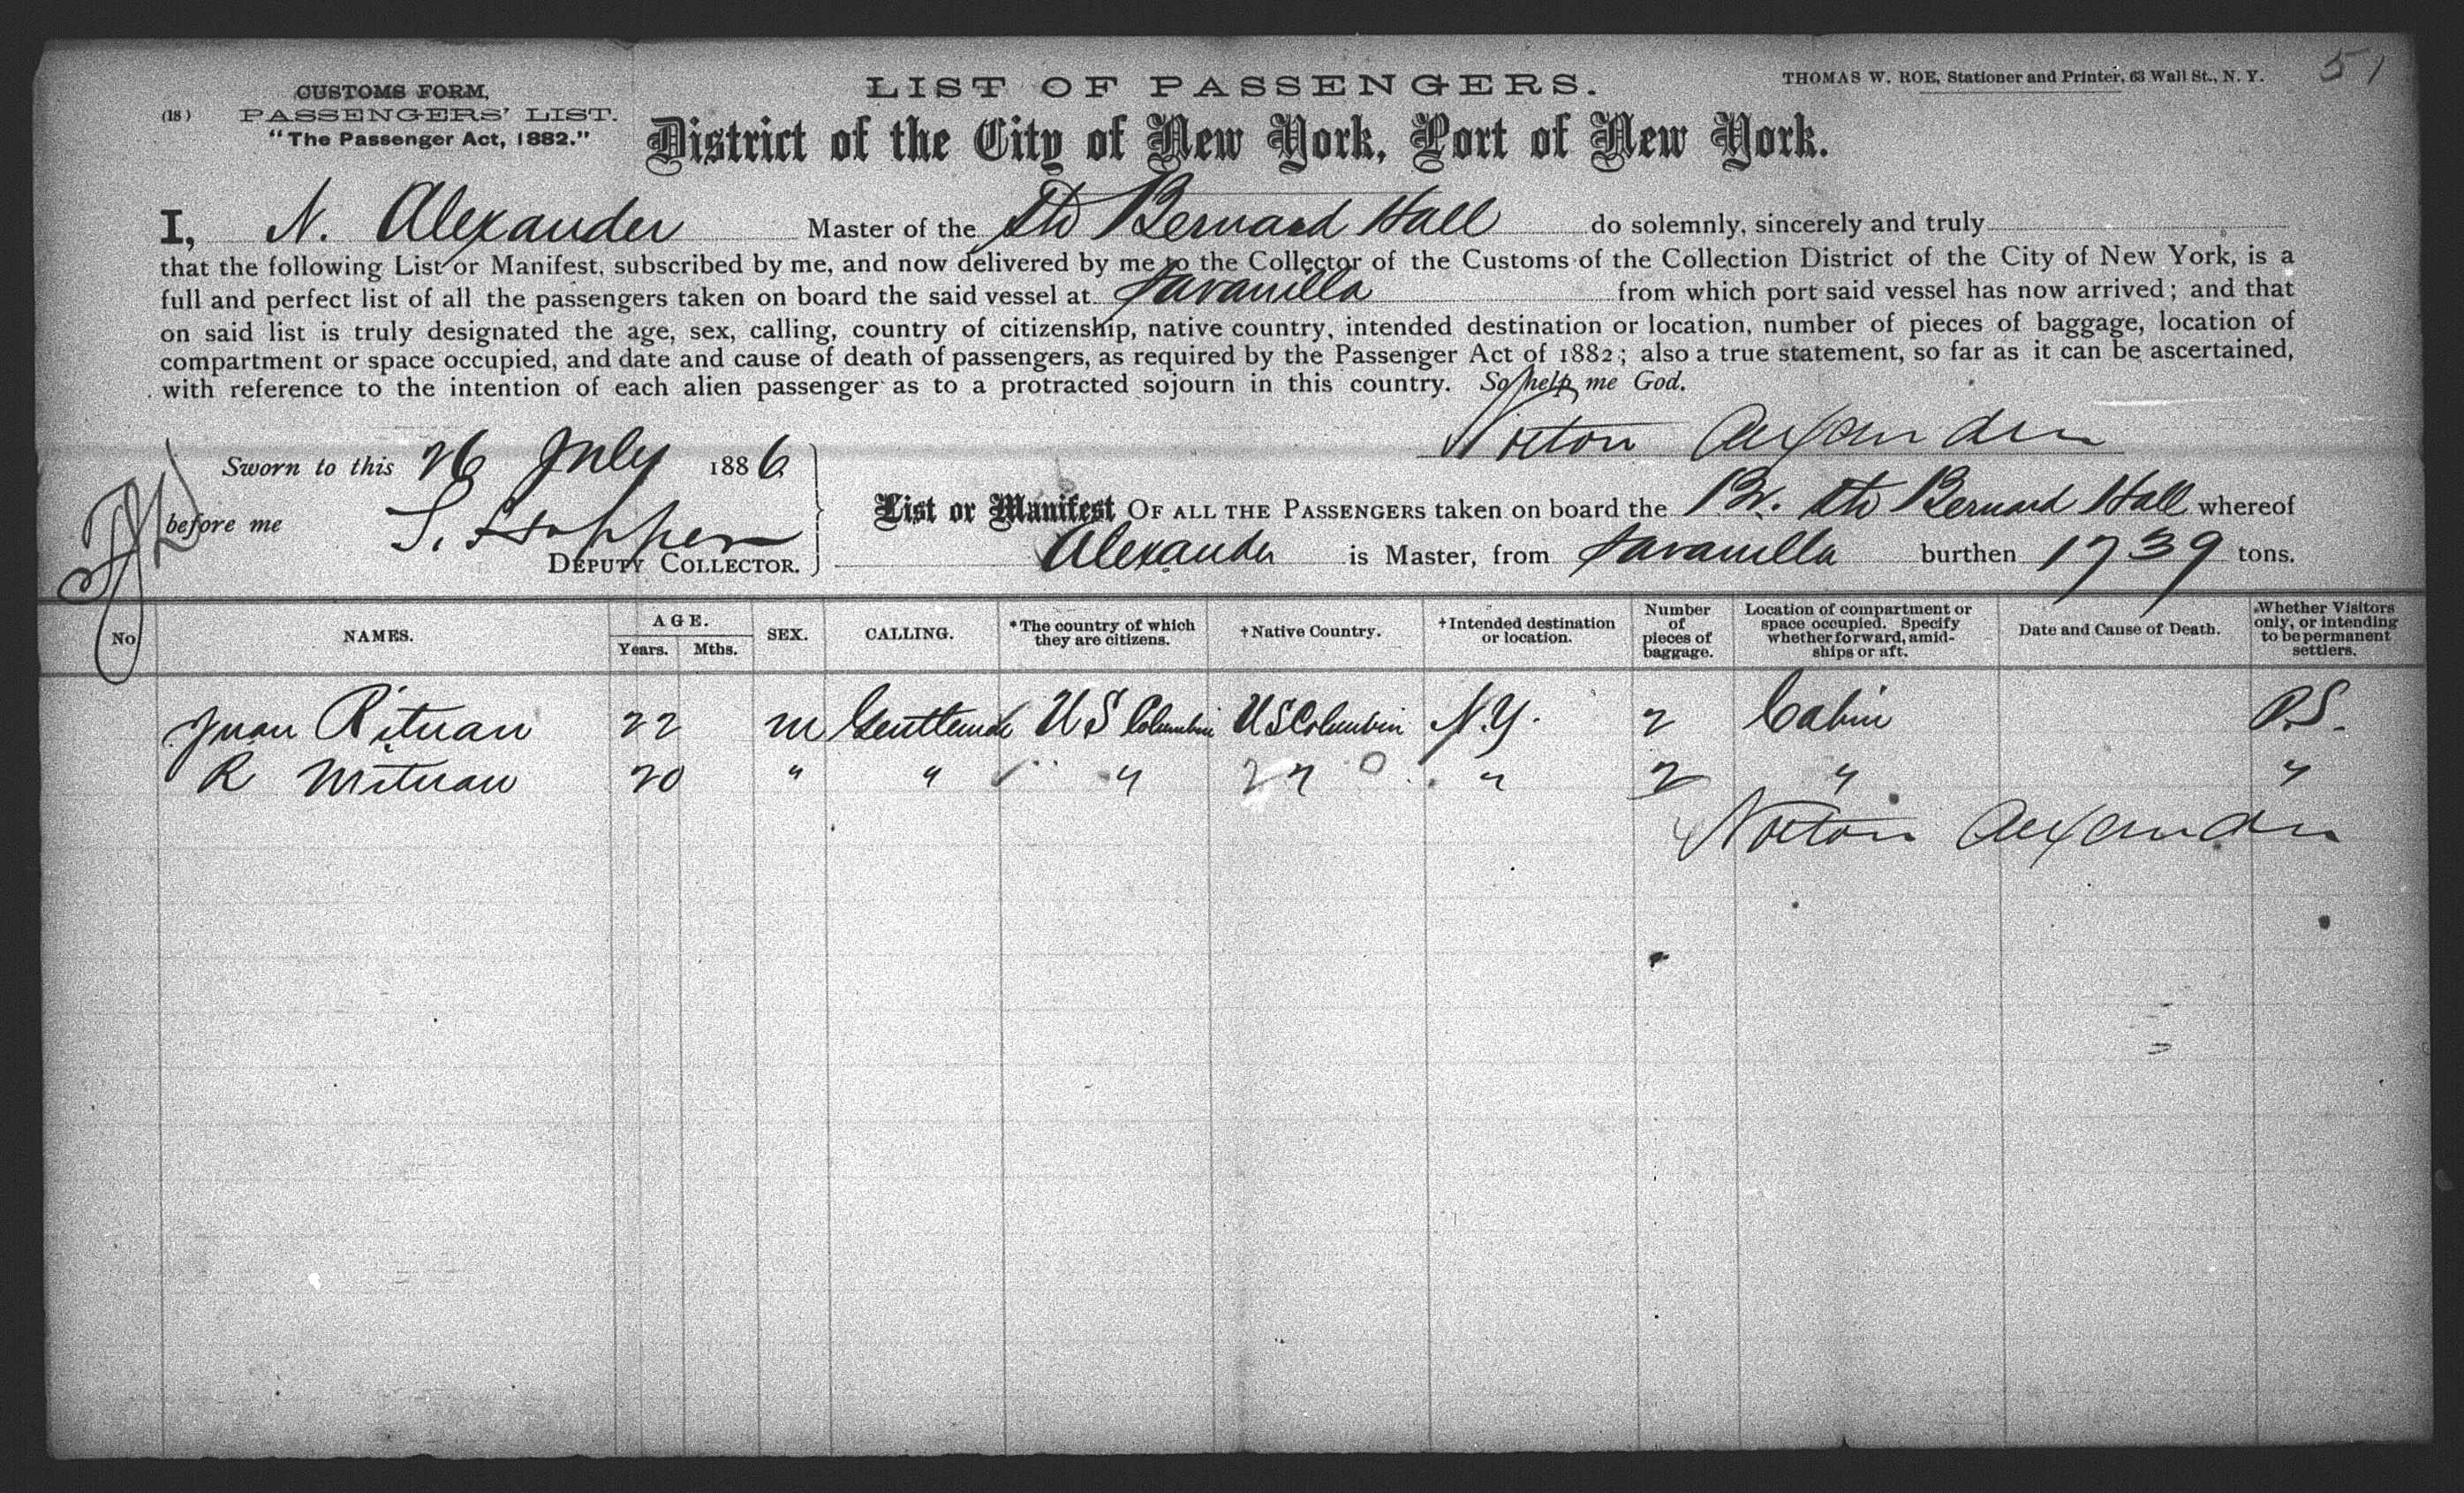 51
CUSTOMS FORM,
(18) PASSENGERS' LIST.
"The Passenger Act, 1882."
LIST OF PASSENGERS.
THOMAS W. ROE, Stationer and Printer, 63 Wall St., N. Y.
District of the City of New York, Port of New York.
I, N. Alexander Master of the Str Bernard Hall do solemnly, sincerely and truly
that the following List or Manifest, subscribed by me, and now delivered by me to the Collector of the Customs of the Collection District of the City of New York, is a
full and perfect list of all the passengers taken on board the said vessel at Savanilla from which port said vessel has now arrived; and that
on said list is truly designated the age, sex, calling, country of citizenship, native country, intended destination or location, number of pieces of baggage, location of
compartment or space occupied, and date and cause of death of passengers, as required by the Passenger Act of 1882; also a true statement, so far as it can be ascertained,
with reference to the intention of each alien passenger as to a protracted sojourn in this country. So help me God.
Norton Alexander
Sworn to this 26 July 1886
before me S. Hopper
DEPUTY COLLECTOR.
List or Manifest OF ALL THE PASSENGERS taken on board the Br. Str Bernard Hall whereof
Alexander is Master, from Savanilla burthen 1739 tons.
No NAMES. AGE. Years. Mths. SEX. CALLING. *The country of which they are citizens. †Native Country. †Intended destination or location. Number of pieces of baggage. Location of compartment or space occupied. Specify whether forward, amidships or aft. Date and Cause of Death. Whether Visitors only, or intending to be permanent settlers.
Juan Rituan 22 m US Columbia US Columbia N.Y. 2 Cabin P.S.
R Mituan 20 " " " " " 2 " "
Norton Alexander